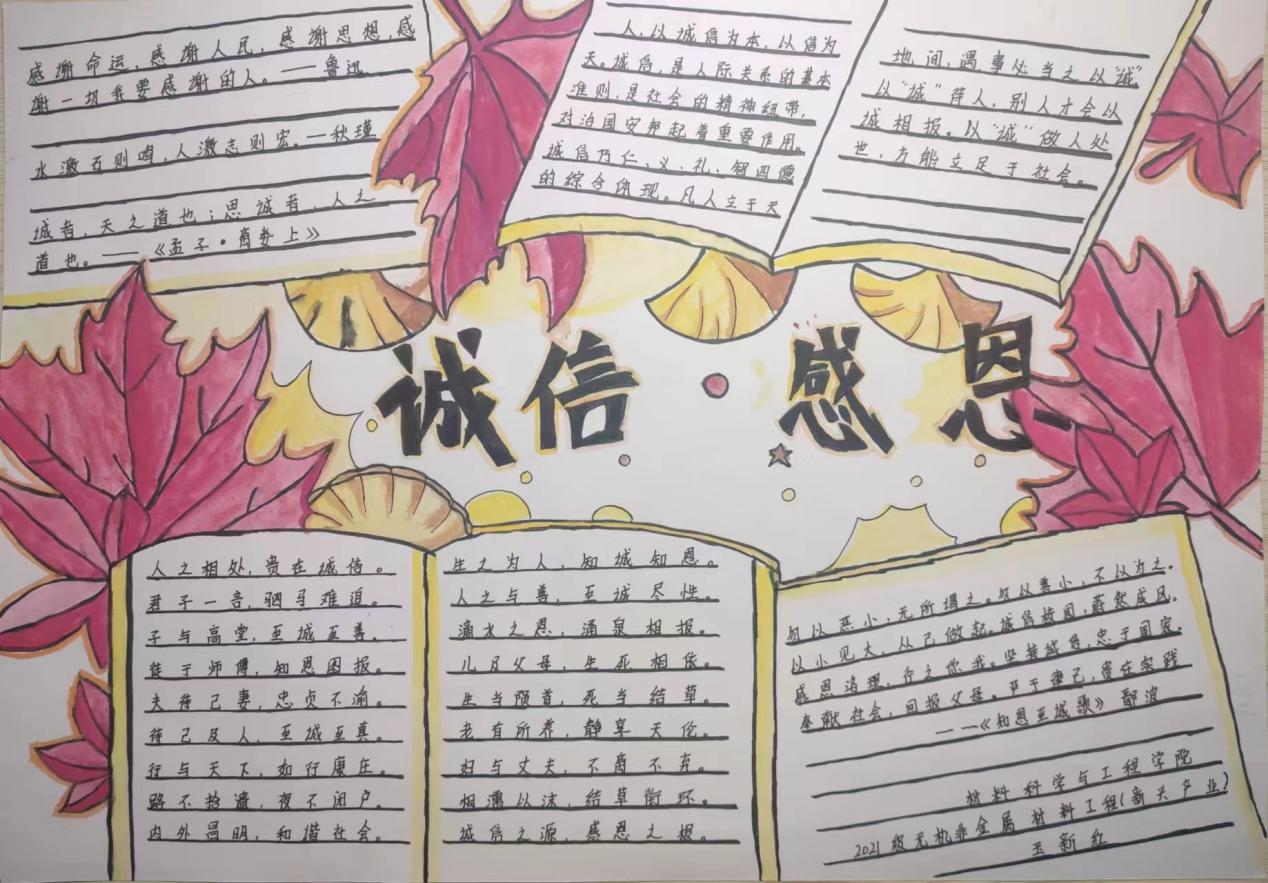 感谢命运，感谢人民，感谢思想，感
谢一切我要感谢的人。——鲁迅
水激石则鸣，人激志则宏。—秋瑾
诚者，天之道也；思诚者，人之
道也。——《孟子·离娄上》
人，以诚信为本，以信为
天。诚信，是人际关系的基本
准则，是社会的精神纽带，
对治国安邦起着重要作用。
诚信乃仁、义、礼、智四德
的综合体现。凡人立于天
地间，遇事处当之以“诚”
以“诚”待人，别人才会以
诚相报。以“诚”做人处
世，方能立足于社会。
诚信·感恩
人之相处，贵在诚信。
君子一言，驷马难追。
子与高堂，至诚至善。
徒于师傅，知恩图报。
夫待己妻，忠贞不渝。
待己及人，至诚至真。
行与天下，如行康庄。
路不拾遗，夜不闭户。
内外昌明，和谐社会。
生之为人，知诚知恩。
人之与善，至诚尽性。
滴水之恩，涌泉相报。
儿及父母，生死相依。
生当陨首，死当结草。
老有所养，静享天伦。
妇与丈夫，不离不弃。
相濡以沫，结草衔环。
诚信之源，感恩之根。
勿以恶小，无所谓之。勿以善小，不以为之。
以小见大，从己做起。诚信校园，蔚然成风。
感恩治理，行之你我。坚持诚信，忠于国家。
奉献社会，回报父母。严于律己，贵在实践
——《知恩至诚歌》鄢波
材料科学与工程学院
2021级无机非金属材料工程(新兴产业)
玉新红